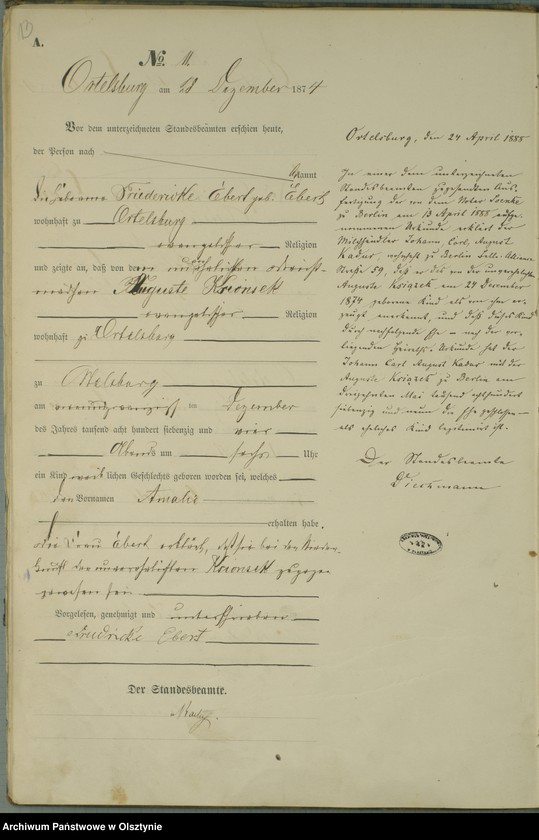 13
A.
No. 11.
Ortelsburg am 28 Dezember 1874
Vor dem unterzeichneten Standesbeamten erschien heute,
der Person nach
kannt
die Hebamme Friedericke Ebert geb. Ebert
wohnhaft zu Ortelsburg
evangelischer Religion
und zeigte an, daß von der unverehelichten Dienst-
mädchen Auguste Krionsek
evangelischer Religion
wohnhaft zu Ortelsburg
zu
am im Dezember
des Jahres tausend acht hundert siebenzig und vier
Abends um sechs Uhr
ein Kind weiblichen Geschlechts geboren worden sei, welches
den Vornamen Amalie
erhalten habe.
Die Frau Ebert erklärt, daß sie bei der Nieder-
kunft der unverehelichten Krionsek zugegen
gewesen sei
Vorgelesen, genehmigt und unterschrieben
Friedricke Ebert
Der Standesbeamte.
Ortelsburg, den 24 April 1885
In einer dem unterzeichneten
Standesbeamten zugehenden Aus-
fertigung der von dem Notar
zu Berlin am 13 April 1885 aufge-
nommenen Urkunde erklärt der
Milchhändler Johann Carl August
Kadar, wohnhaft zu Berlin Belle-Alliance
Straße 59, daß er die von der unverehelichten
Auguste Ksiązek am 24 Dezember
1874 geborene Kind als von ihm er-
zeugt anerkennt, und daß dasselbe Kind
durch nachfolgende Ehe – nach der vor-
liegenden Heiraths-Urkunde hat der
Johann Carl August Kadar mit der
Auguste Ksiązek zu Berlin am
dreizehnten Mai tausend achthundert
siebenzig und neun die Ehe geschlossen –
als eheliches Kind legitimirt ist.
Der Standesbeamte
Dieckmann
Archiwum Państwowe w Olsztynie